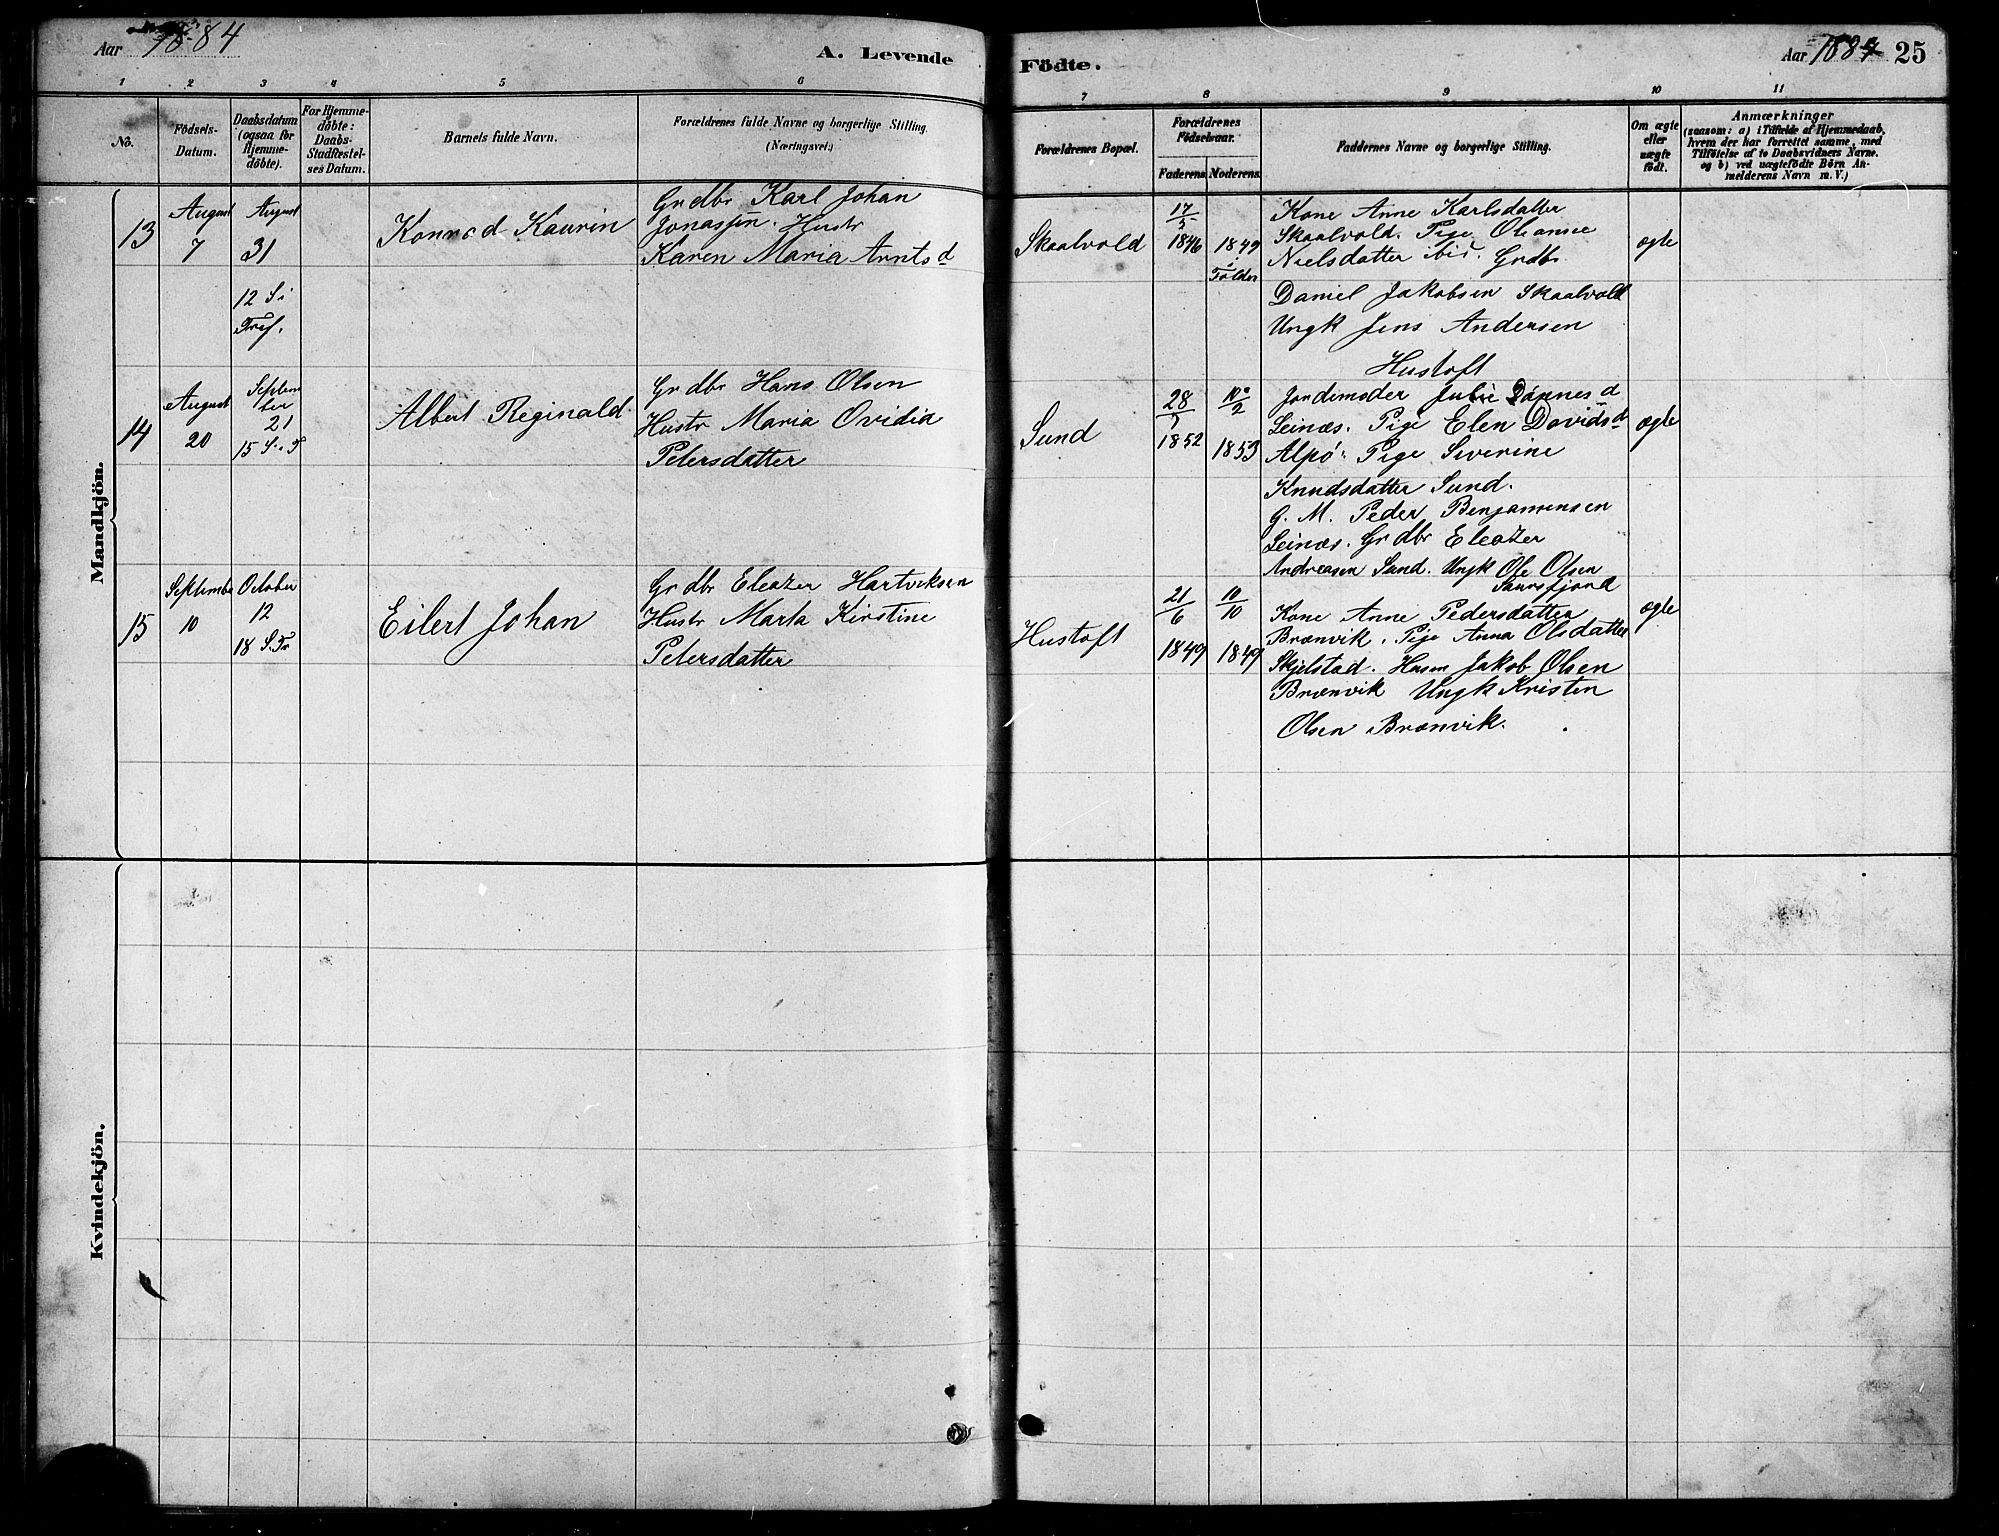 Aar 1884
A. Levende
Födte.
Aar 1884
25
1 2 3 4 5 6 7 8 9 10 11
No.
Födsels-
Datum.
Daabsdatum
(ogsaa for
Hjemme-
döbte).
For Hjemme-
döbte:
Daabs-
Stadfæstel-
ses Datum.
Barnets fulde Navn.
Forældrenes fulde Navne og borgerlige Stilling.
(Næringsvei.)
Forældrenes Bopæl.
Forældrenes
Födselsaar.
Faderens. Moderens.
Faddernes Navne og borgerlige Stilling.
Om ægte
eller
uægte
födt.
Anmærkninger
(saasom: a) i Tilfælde af Hjemmedaab,
hvem der har forrettet samme, med
Tilföielse af to Daabsvidners Navne.
og b) ved uægtefödte Börn An-
melderens Navn m. V.)
Mandkjön.
13
August
7
August
31
12 S. i
Tref.
Konrad Kaurin
Grdbr Karl Johan
Jonassen. Hustr
Karen Maria Arntsd
Skaalvold
17/5
1846
1849
i
Folden
Kone Anne Karlsdatter
Skaalvold. Pige Oleanse
Nielsdatter ibid. Grdbr
Daniel Jakobsen Skaalvold
Ungk Jens Andersen
Hustoft
ægte
14
August
20
Septem
ber
21
15 S. i T
Albert Reginald
Grdbr Hans Olsen
Hustr Maria Ovidia
Petersdatter
Sund
28/7
1852
10/2
1853
Jordemoder Julie Dønnesd
Leinæs. Pige Elen Davidsd
Alpø. Pige Severine
Knudsdatter Sund.
G. M. Peder Benjaminsen
Leinæs. Grdbr Eleazer
Andreasen Sund. Ungk Ole Olsen
Saursfjord
ægte
15
Septembr
10
October
12
18 S. Tr
Eilert Johan
Grdbr Eleazer Hartviksen
Hustr Marta Kirstine
Petersdatter
Hustoft
21/6
1849
10/10
1849
Kone Anne Pedersdatter
Brænvik. Pige Anna Olsdatter
Skjelstad. Husm Jakob Olsen
Brænvik Ungk Kristen
Olsen Brænvik.
ægte
Kvindekjön.